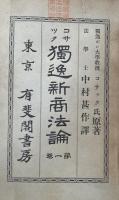 獨逸ベルリン大學教授コサック氏原著
法學士中村甚作譯
コサック獨逸新商法論
第一卷
東京 有斐閣書房